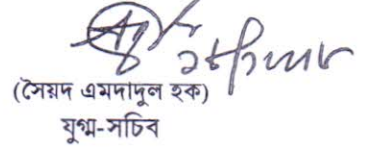 (সৈয়দ এমদাদুল হক)
যুগ্ম-সচিব